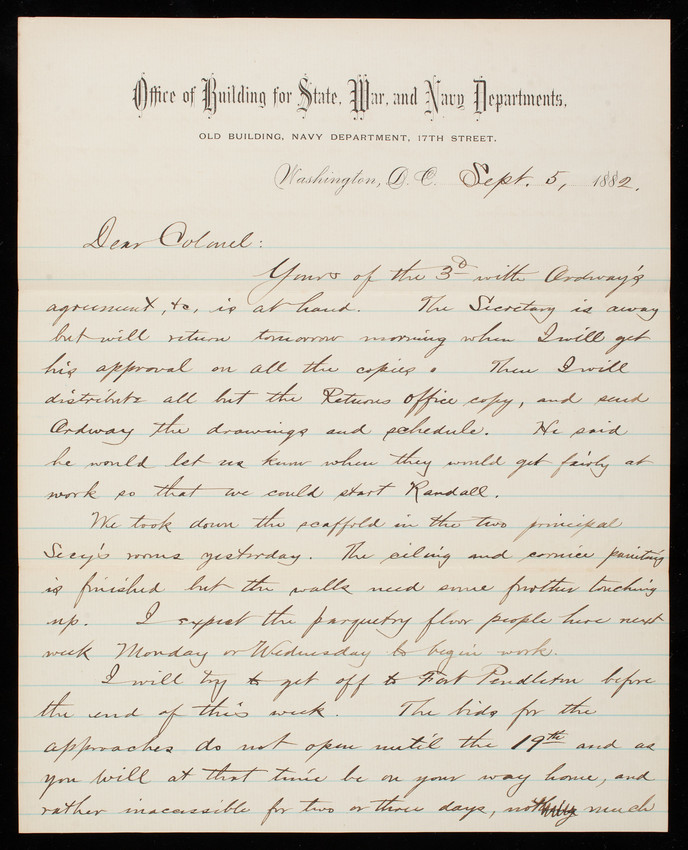 Office of Building for State, War, and Navy Departments.
OLD BUILDING, NAVY DEPARTMENT, 17TH STREET.
Washington, D. C. Sept. 5, 1882.
Dear Colonel:
Yours of the 3d with Ordway's
agreement, &c, is at hand. The Secretary is away
but will return tomorrow morning when I will get
his approval on all the copies. Then I will
distribute all but the Returns office copy, and send
Ordway the drawings and schedule. He said
he would let us know when they would get fairly at
work so that we could start Randall.
We took down the scaffold in the two principal
Secy's rooms yesterday. The ceiling and cornice painting
is finished but the walls need some further touching
up. I expect the parquetry floor people here next
week Monday or Wednesday to begin work.
I will try to get off to Fort Pendleton before
the end of this week. The bids for the
approaches do not open until the 19th and as
you will at that time be on your way home, and
rather inacessible for two or three days, not much